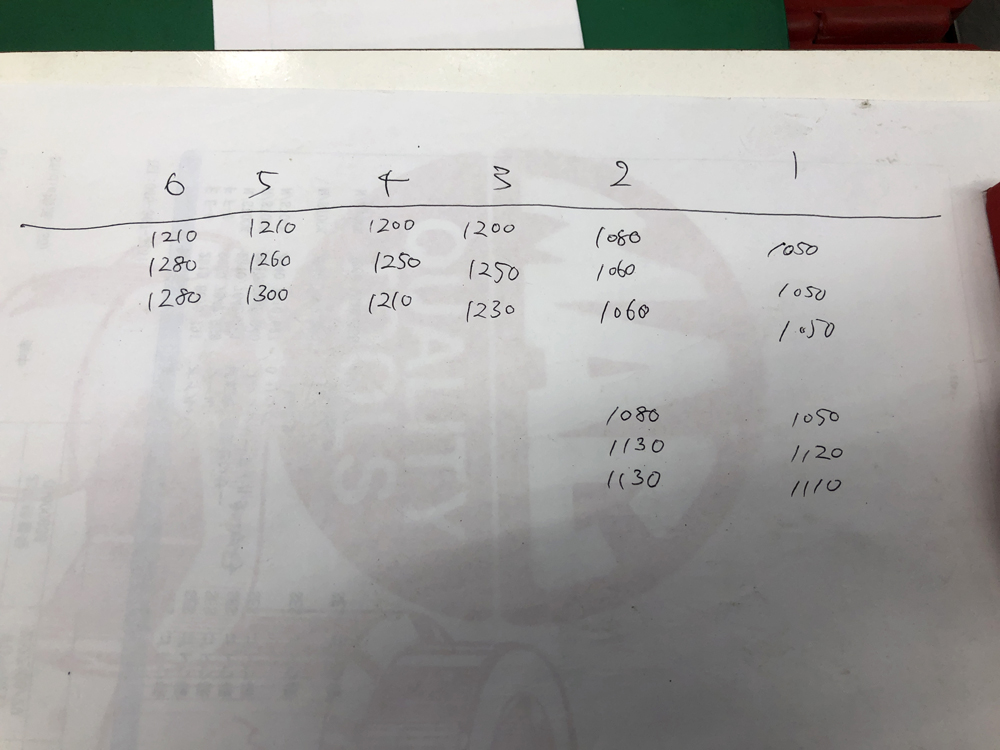 6 5 4 3 2 1
1210 1210 1200 1200 1080 1050
1280 1260 1250 1250 1060 1050
1280 1300 1210 1230 1060 1050
1080 1050
1130 1120
1130 1110
QUALITY
TOOLS